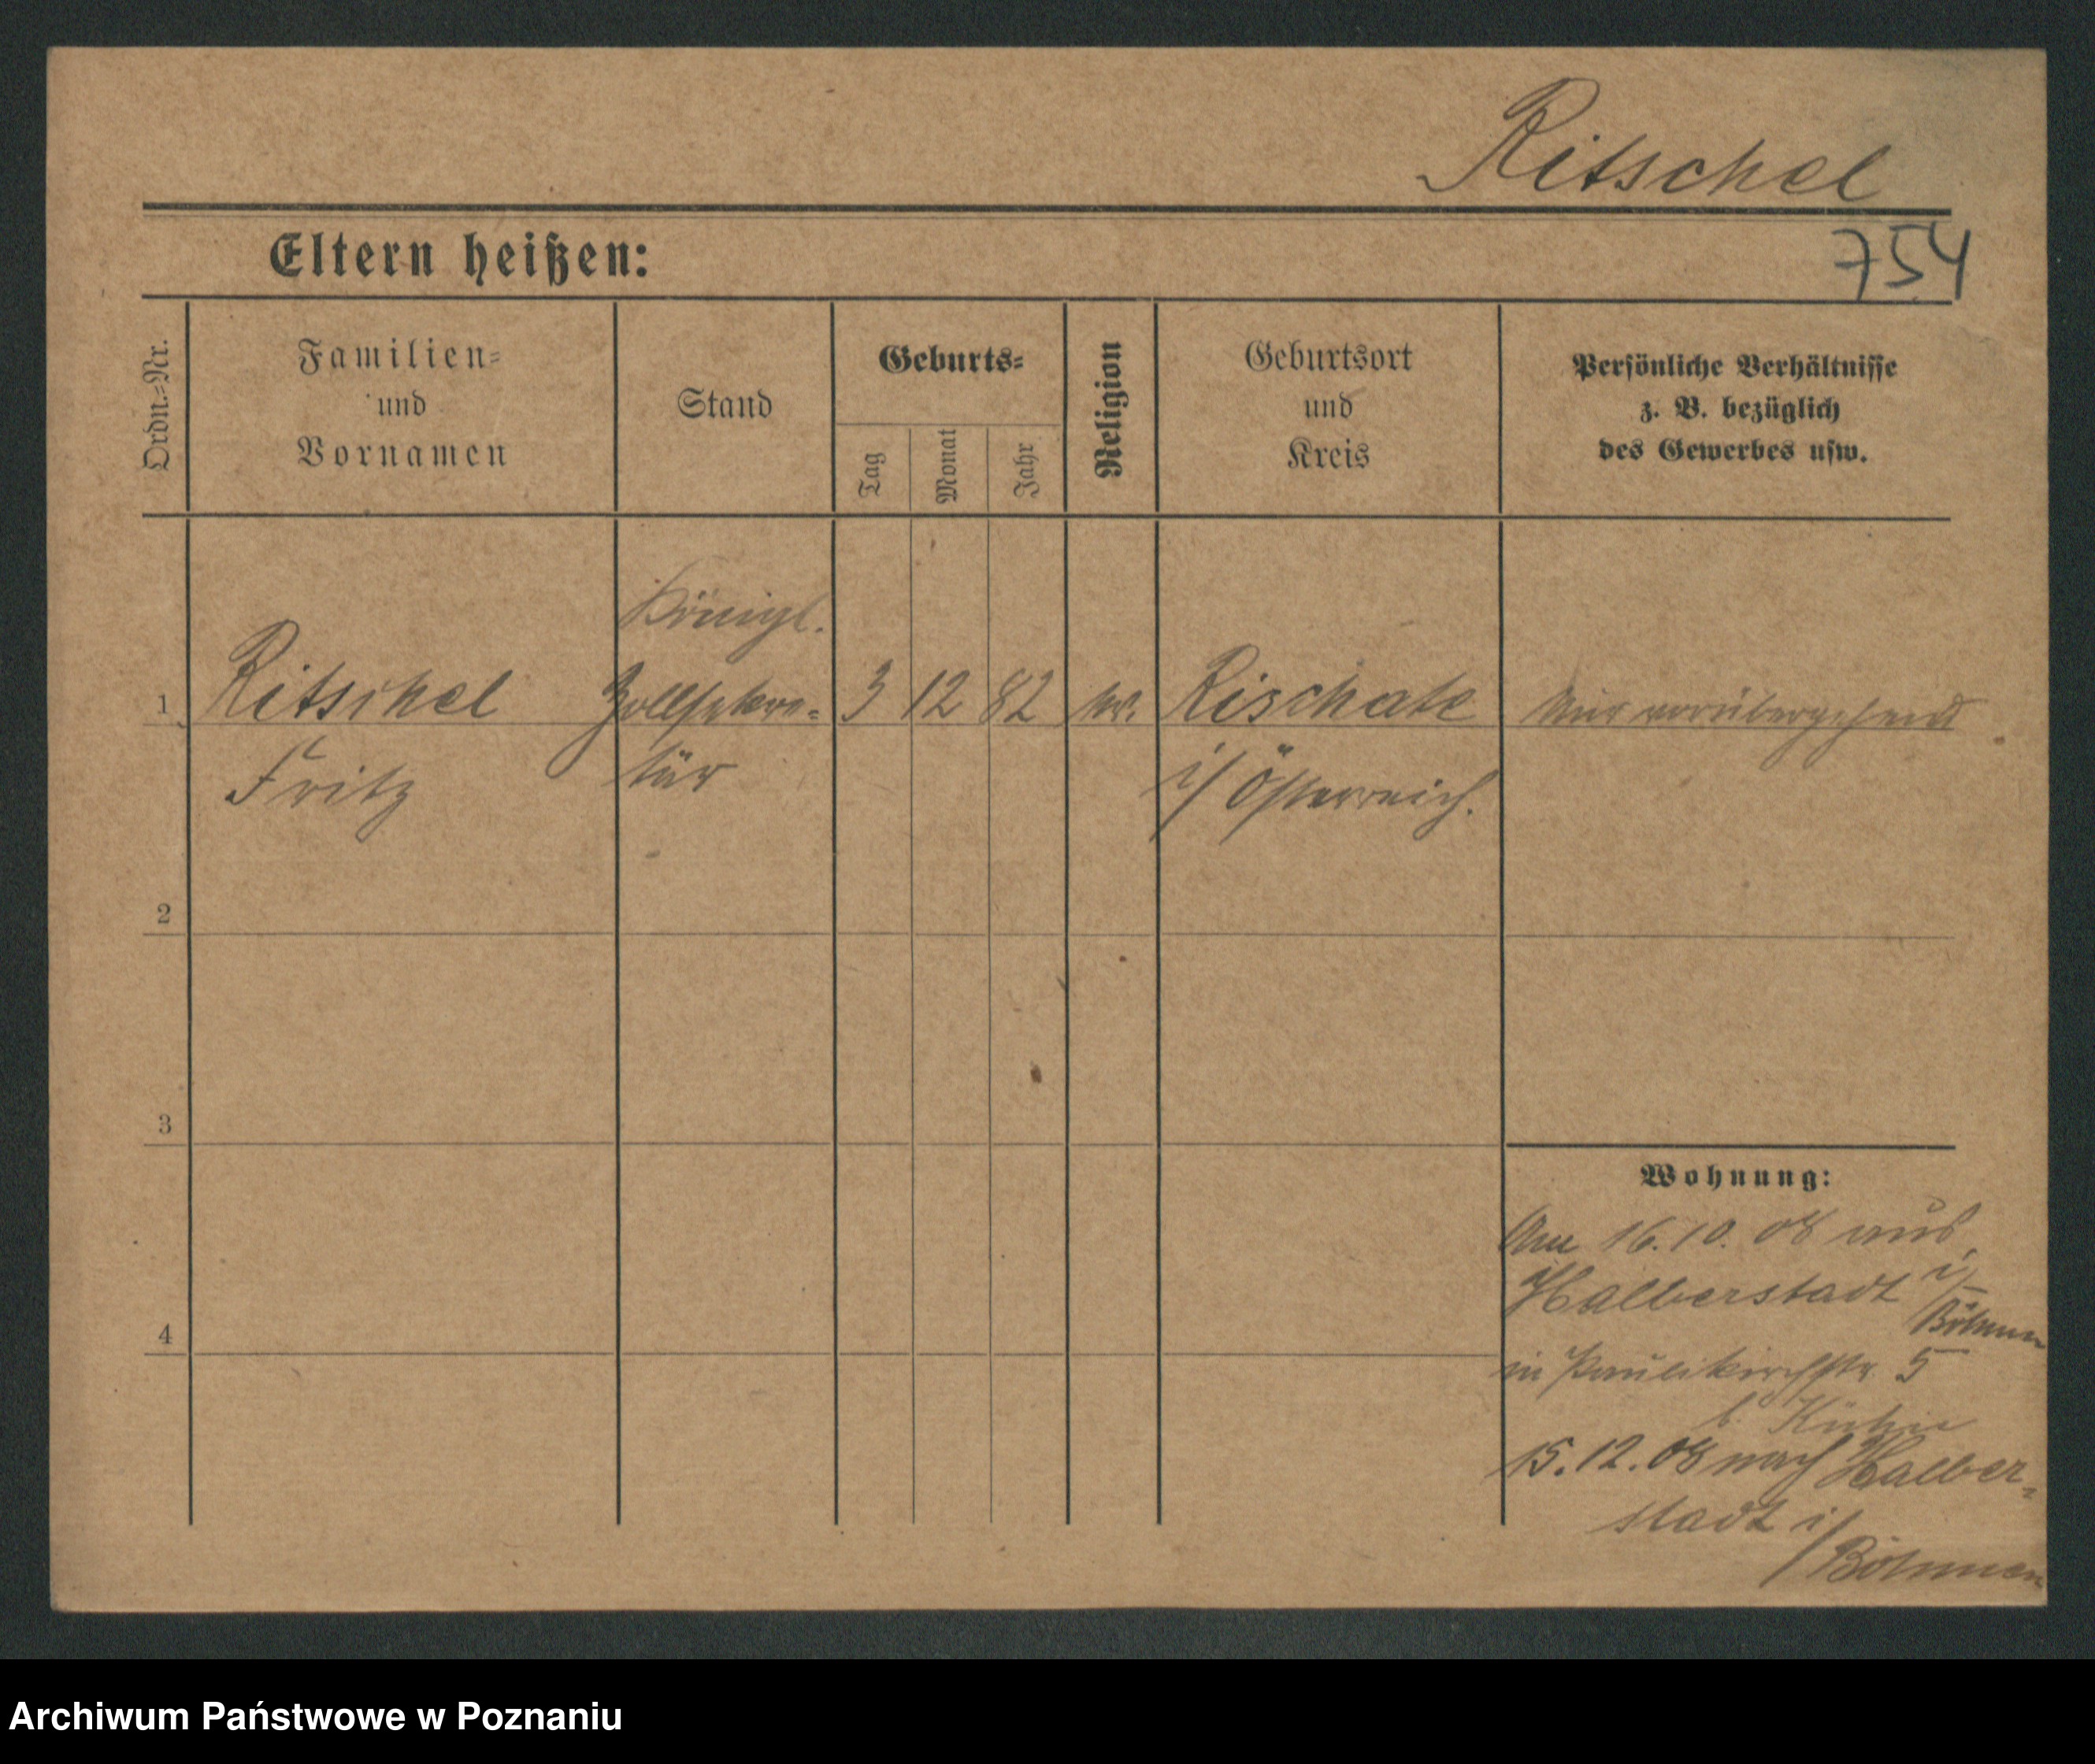 Ritschel
Eltern heißen:
754
Ordn.-Nr.
Familien-
und
Vornamen
Stand
Geburts-
Tag
Monat
Jahr
Religion
Geburtsort
und
Kreis
Persönliche Verhältnisse
z. B. bezüglich
des Gewerbes usw.
Königl.
1 Ritschel Zollsekre- 3 12 82 Rischate Nur vorübergehend
Fritz tär i/ Österreich.
2
3
4
Wohnung:
Am 16.10.08 aus
Halberstadt i/
Böhmen
in Paulikirchstr. 5
b.
15.12.08 nach Halber-
stadt i/
Böhmen
Archiwum Państwowe w Poznaniu